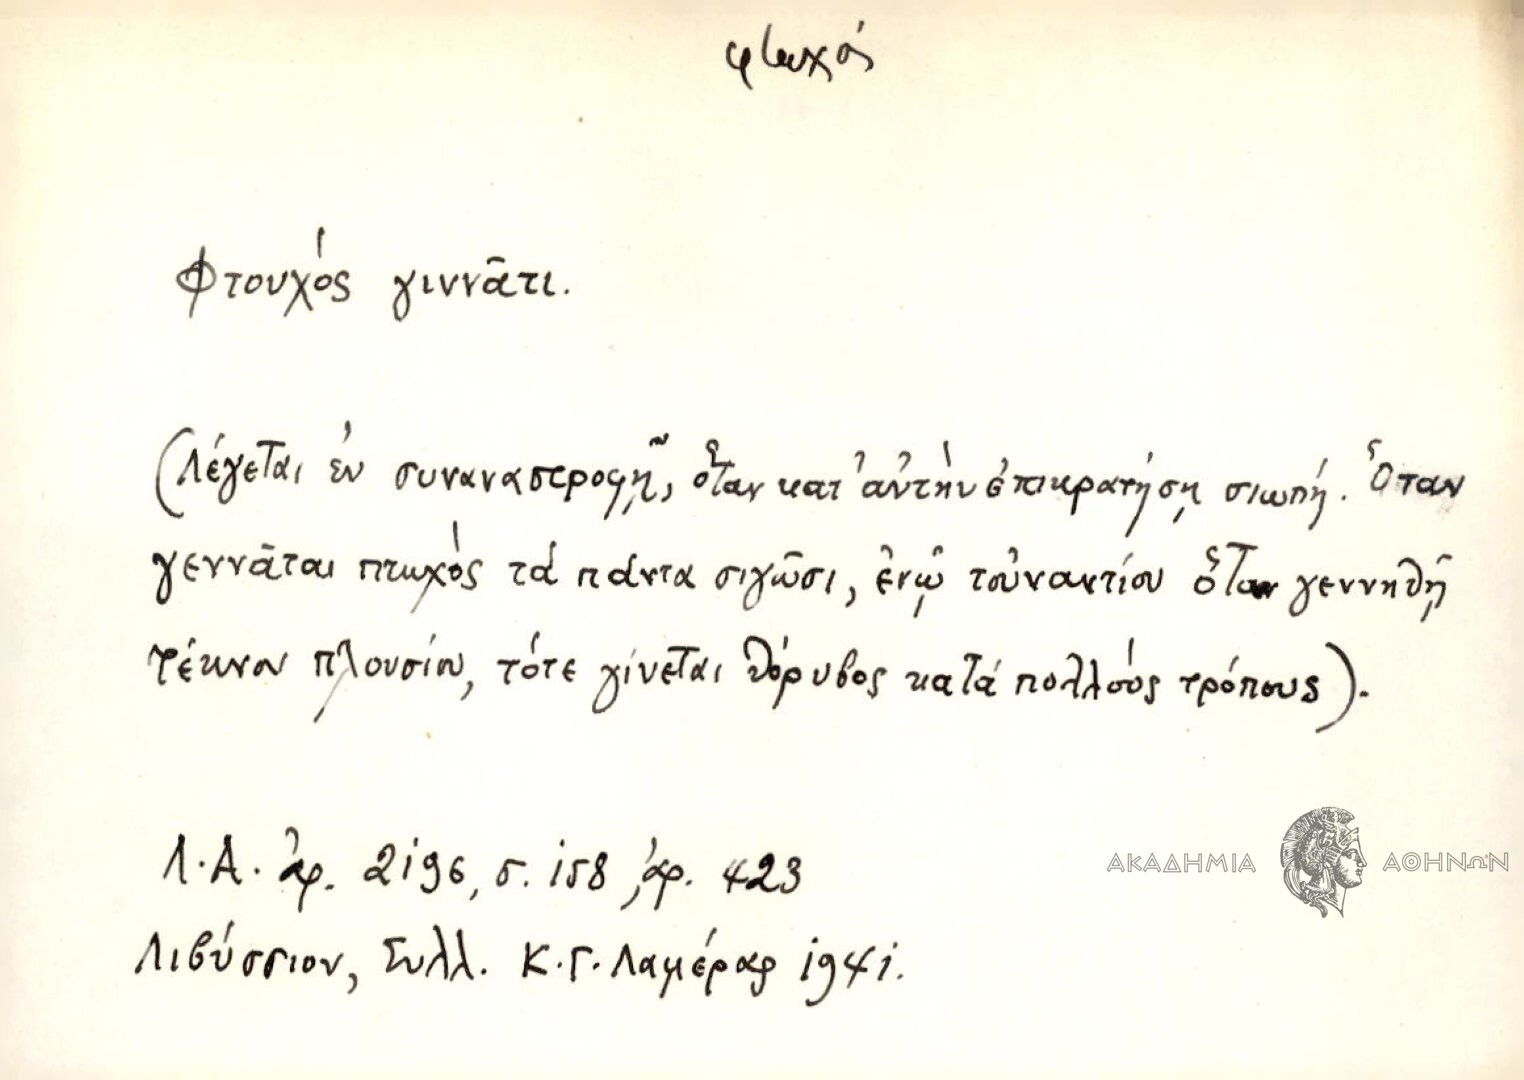 φτωχός
Φτουχὸς γιννᾶτι.
(Λέγεται ἐν συναναστροφῇ, ὅταν κατ' αὐτὴν ἐπικρατήσῃ σιωπή. Ὅταν
γεννᾶται πτωχὸς τὰ πάντα σιγῶσι, ἐνῷ τοὐναντίον ὅταν γεννηθῇ
τέκνον πλουσίου, τότε γίνεται θόρυβος κατὰ πολλοὺς τρόπους).
Λ.Α. ἀρ. 2196, σ. 158, ἀρ. 423
ΑΚΑΔΗΜΙΑ ΑΘΗΝΩΝ
Λιβύσσιον, Συλλ. Κ.Γ. Λαμέρας 1941.